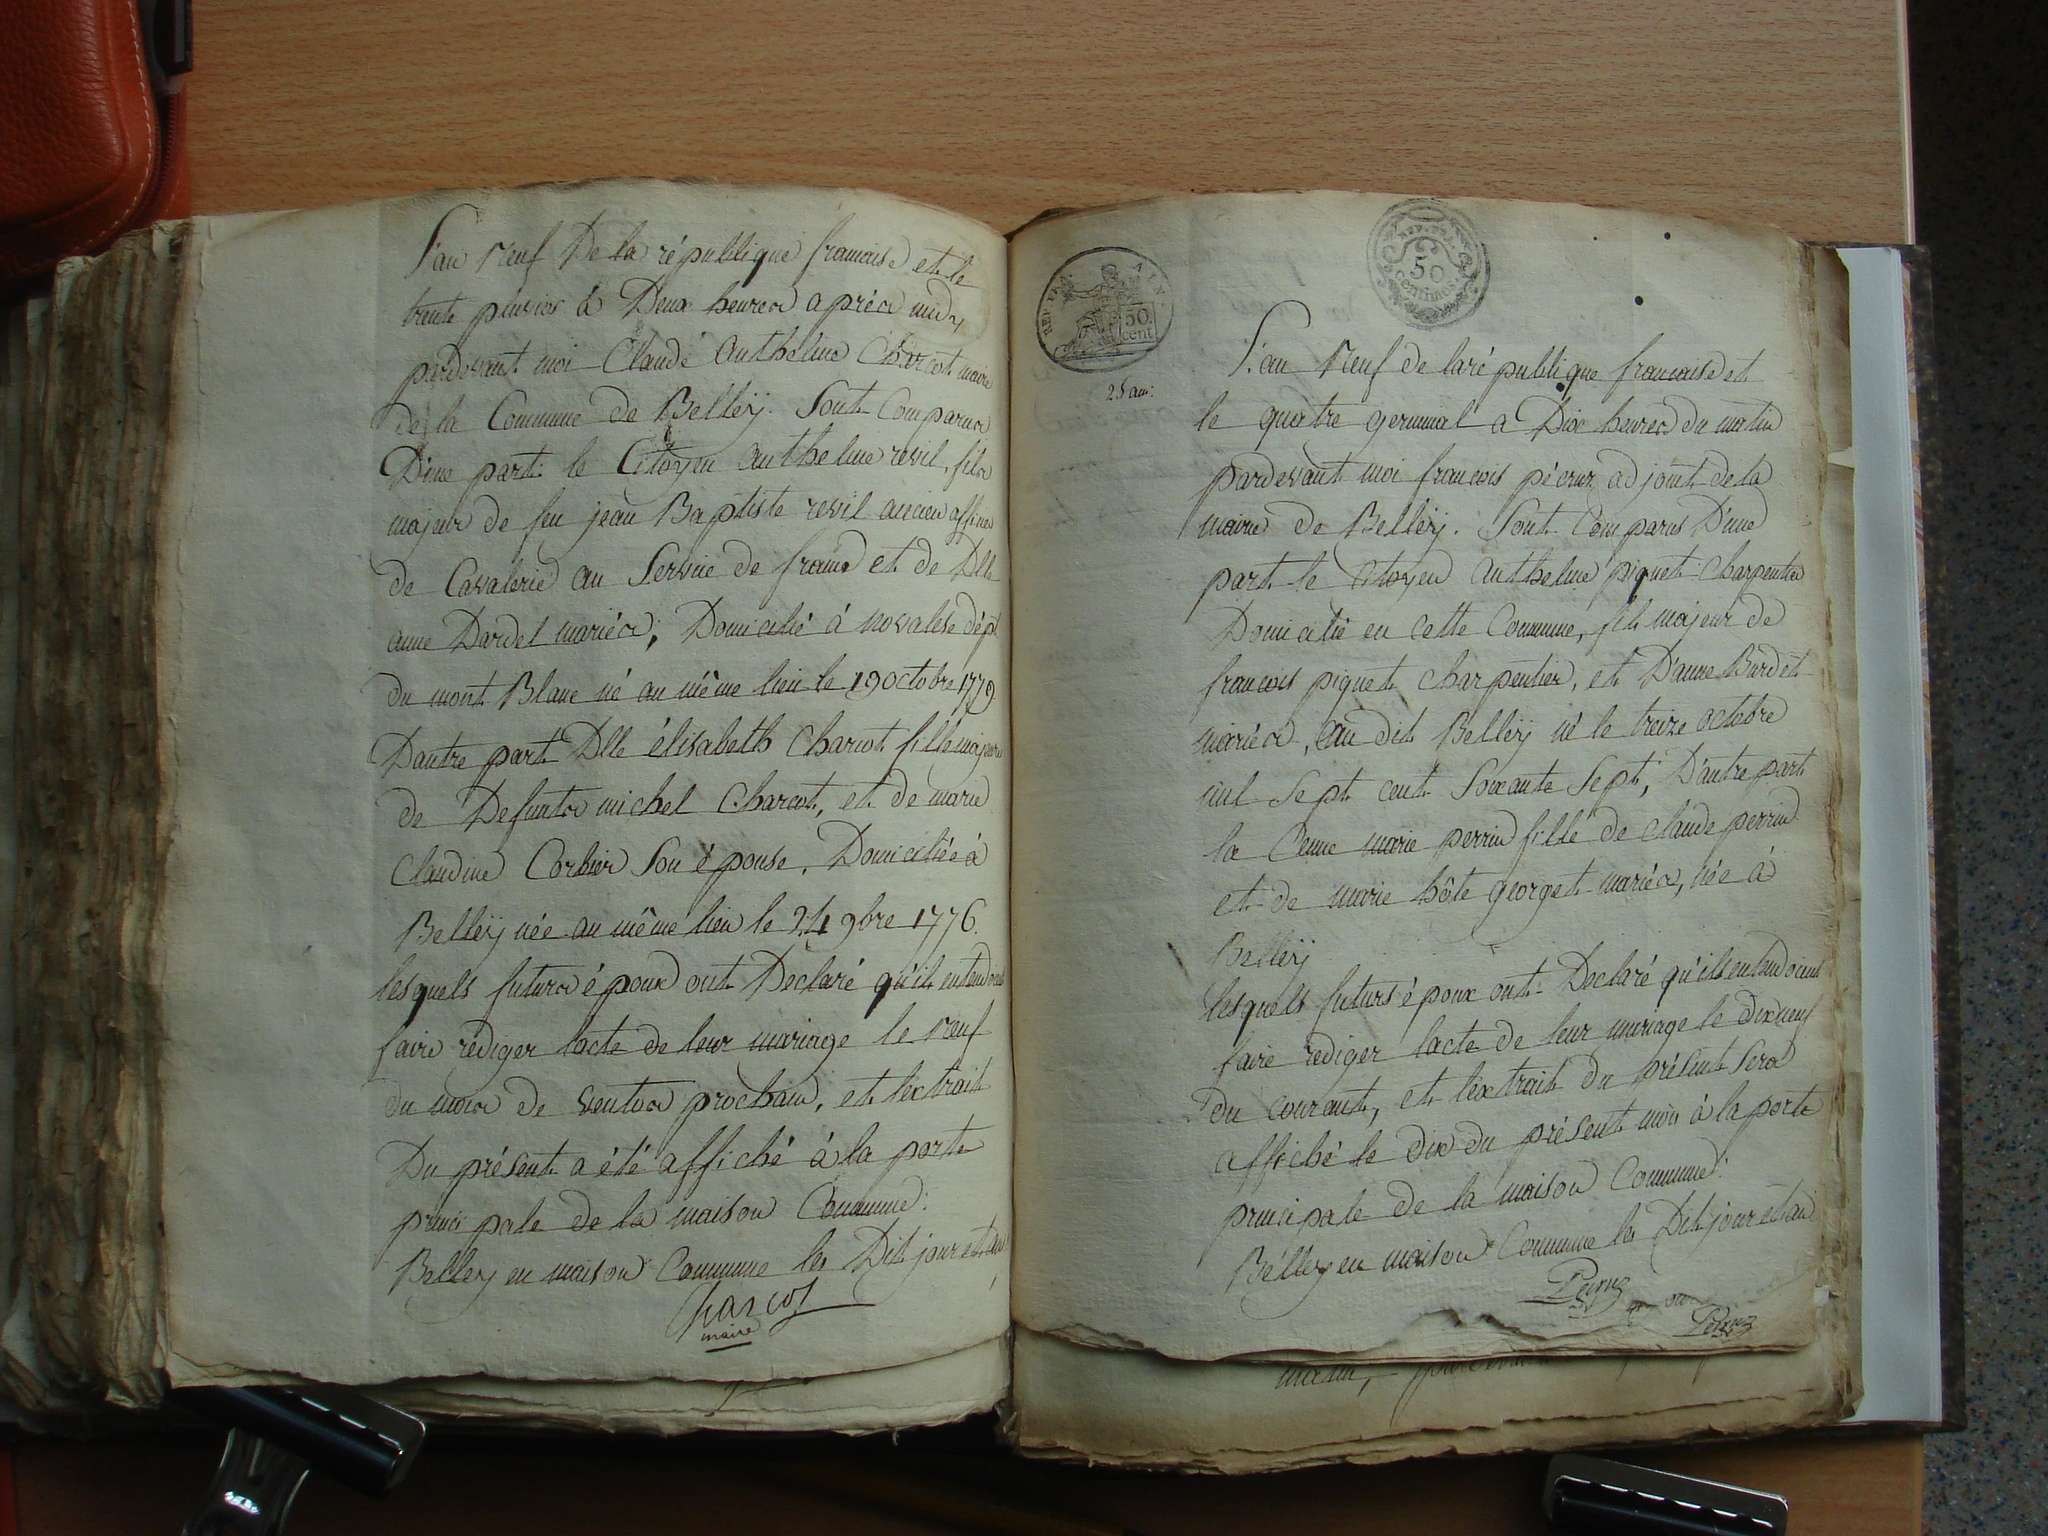 L'an neuf De la république francaise et le
trente pluvios à Deux heures après midy
pardevant moi Claude anthelme Charcot maire
de la Commune de Belleÿ. Sont Comparus
D'une part le Citoyen anthelme revil, fils
majeur de feu jean Baptiste revil ancien officier
de Cavalerie au Service de france et de Dlle
anne Dardel mariés, Domicilié à novalese dépt
du mont Blanc né au même lieu le 19 octobre 1779.
Dautre part Dlle élisabeth Charcot fille majeure
de Defunts michel Charcot, et de marie
Claudine Corbier Son épouse, Domiciliée à
Belleÿ née au même lieu le 24 9bre 1776.
lesquels futurs époux ont Declaré qu'il entendoient
faire rédiger lacte de leur mariage le neuf
du mois de ventos prochain, et l'extrait
Du présent a été affiché à la porte
principale de la maison Commune.
Belleÿ en maison Commune les Dit jour et an
Charcot
maire
REP. FRA.
50
cent
REP. FRA.
50
Centimes
25 am:
L'an neuf de la république francaise et
le quatre germinal a Dix heures du matin
pardevant moi francois adjoint de la
mairie de Belleÿ. Sont Comparus D'une
part le citoyen anthelme piquet charpentier
Domicilié en cette Commune, fils majeur de
francois piquet charpentier, et D'anne Burdet
mariés, au dit Belleÿ né le treize octobre
mil Sept cent Soixante Sept, D'autre part
la Cenne marie perrin fille de claude perrin
et de marie hôte georget mariés, née à
Belleÿ
lesquels futurs époux ont Declaré qu'ils entendoient
faire rediger lacte de leur mariage le dixneuf
du courant, et l'extrait du présent Sera
affiché le dix du présent mois à la porte
principale de la maison Commune.
Belleÿ en maison Commune les Dit jour et an